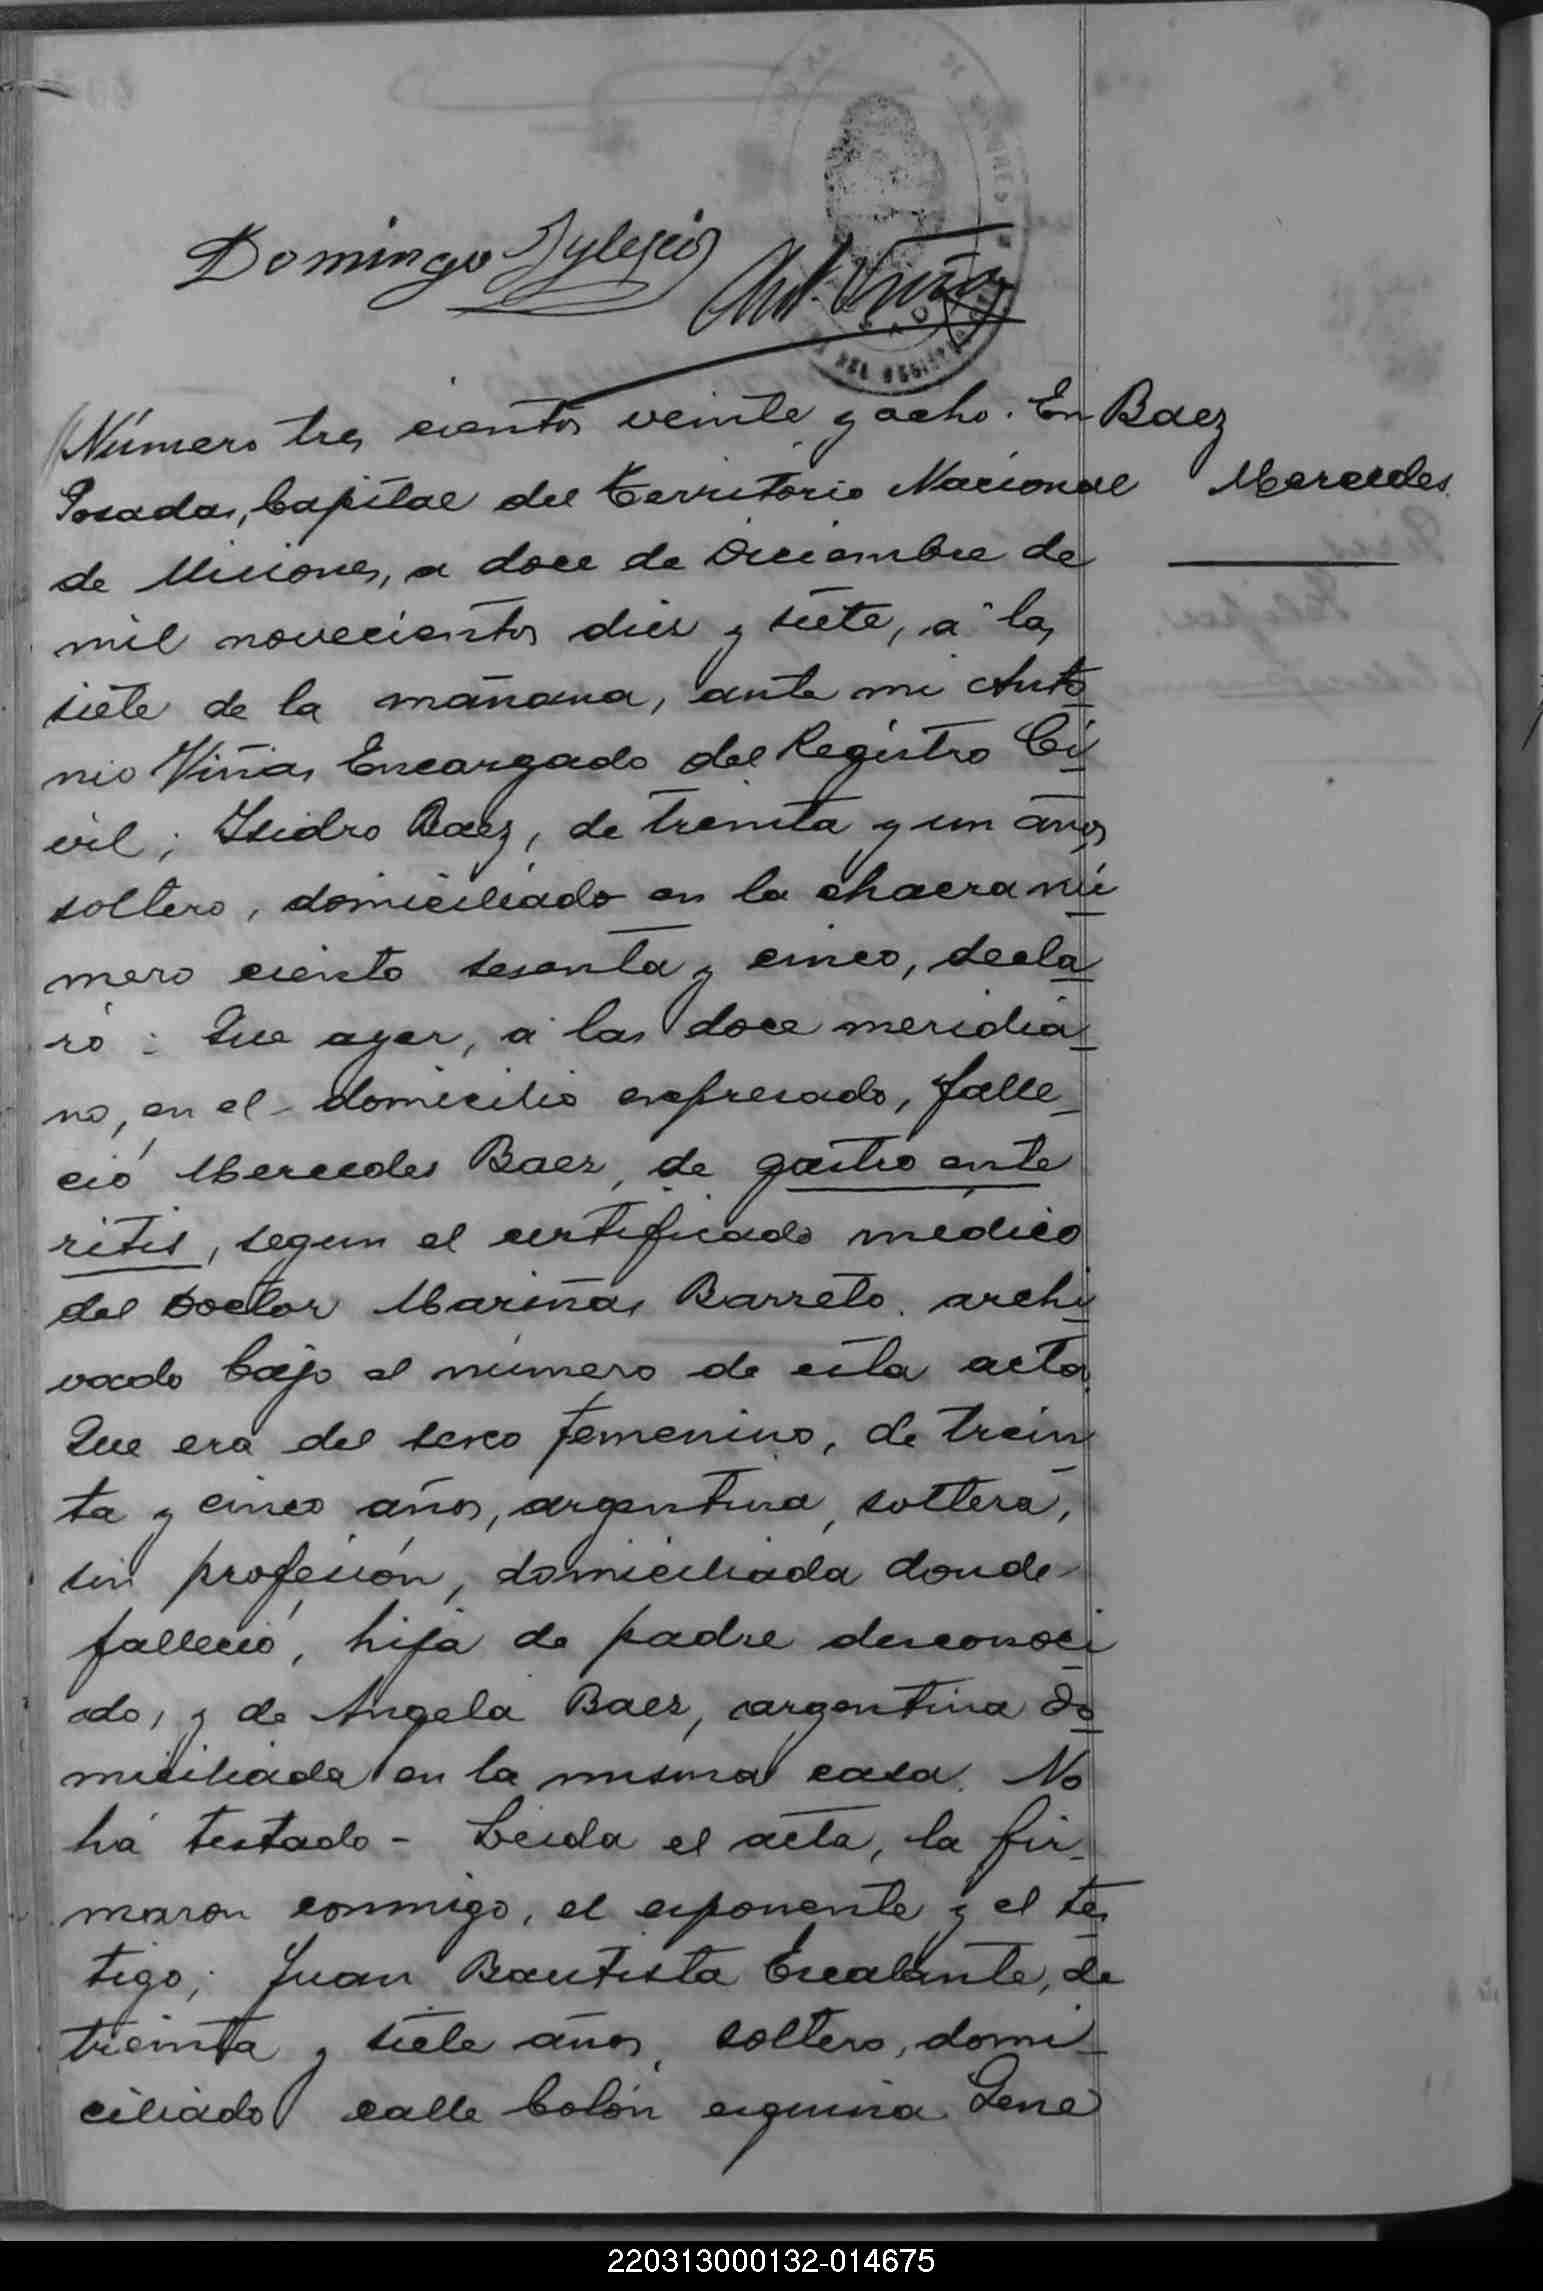 Domingo Yglesias
Ant. Viñas
Número tres cientos veinte y ocho. En
Baez
Mercedes
Posadas, Capital del Territorio Nacional
de Misiones, a doce de Diciembre de
mil novecientos diez y siete, á las
siete de la mañana, ante mi Anto
nio Viñas Encargado del Registro Ci
vil; Isidro Baez, de treinta y un años
soltero, domiciliado en la chacra nú
mero ciento sesenta y cinco, decla
ró: Que ayer, á las doce meridia
no, en el domicilio expresado, falle
ció Mercedes Baez, de gastro ente
ritis, segun el certificado médico
del Doctor Mariñas Barreto. archi
vado bajo el número de esta acta
Que era del sexo femenino, de trein
ta y cinco años, argentina, soltera,
sin profesión, domiciliada donde
falleció, hija de padre desconoci
do, y de Angela Baez, argentina do
miciliada en la misma casa. No
há testado - Leida el acta, la fir
maron conmigo, el exponente y el tes
tigo; Juan Bautista Escalante, de
treinta y siete años, soltero, domi
ciliado calle Colón esquina Gene
220313000132-014675